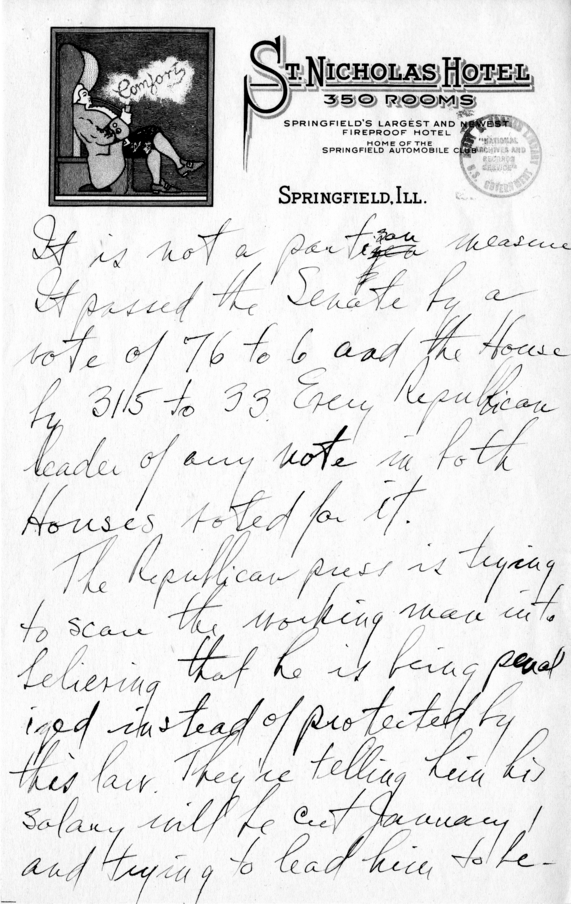 Comfort
ST. NICHOLAS HOTEL
350 ROOMS
SPRINGFIELD'S LARGEST AND NEWEST
FIREPROOF HOTEL
HOME OF THE
SPRINGFIELD AUTOMOBILE CLUB
"NATIONAL
ARCHIVES AND
RECORDS
SERVICE"
U.S. GOVERNMENT
SPRINGFIELD, ILL.
It is not a partisan measure
It passed the Senate by a
vote of 76 to 6 and the House
by 315 to 33. Every Republican
leader of any note in both
Houses voted for it.
The Republican press is trying
to scare the working man into
believing that he is being penal
ized instead of protected by
this law. They're telling him his
salary will be cut January 1
and trying to lead him to be-